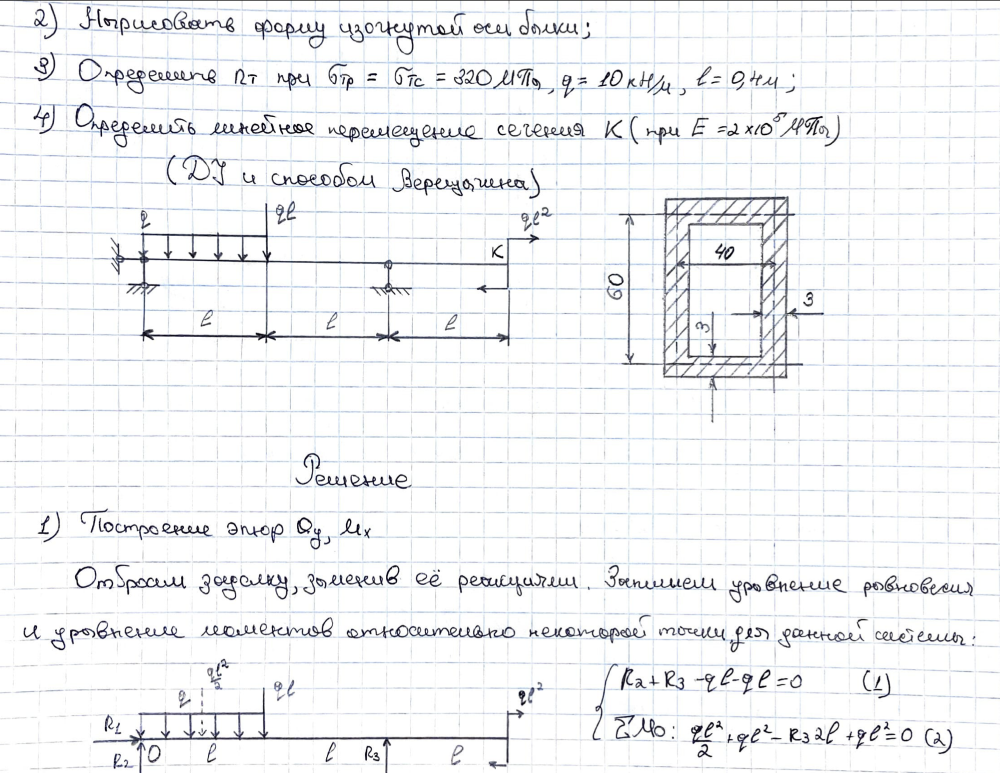 2) Нарисовать форму изогнутой оси балки;
3) Определить nт при σтр = σтс = 320 МПа, q = 10 кН/м, l = 0,4м;
4) Определить линейное перемещение сечения K (при E = 2×10⁵ МПа)
(ДУ и способом Верещагина)
q
ql
ql²
K
l
l
l
60
40
3
3
Решение
1) Построение эпюр Qy, Mx
Отбросим заделку, заменив её реакциями. Запишем уравнение равновесия
и уравнение моментов относительно некоторой точки для данной системы:
q
ql²/2
ql
ql²
R1
R2
O
l
l
R3
l
R2 + R3 - ql - ql = 0 (1)
ΣMo: ql²/2 + ql² - R3 2l + ql² = 0 (2)